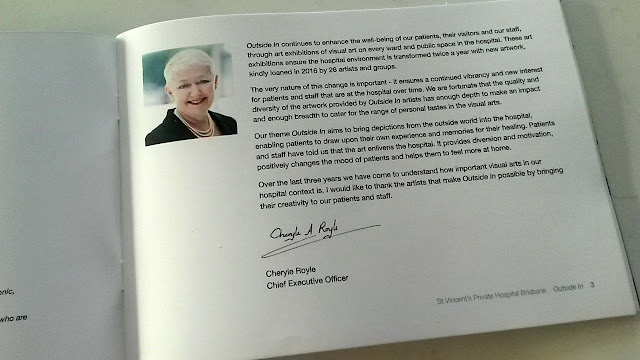 Outside In continues to enhance the well-being of our patients, their visitors and our staff,
through art exhibitions of visual art on every ward and public space in the hospital. These art
exhibitions ensure the hospital environment is transformed twice a year with new artwork,
kindly loaned in 2016 by 26 artists and groups.
The very nature of this change is important - it ensures a continued vibrancy and new interest
for patients and staff that are at the hospital over time. We are fortunate that the quality and
diversity of the artwork provided by Outside In artists has enough depth to make an impact
and enough breadth to cater for the range of personal tastes in the visual arts.
Our theme Outside In aims to bring depictions from the outside world into the hospital,
enabling patients to draw upon their own experience and memories for their healing. Patients
and staff have told us that the art enlivens the hospital. It provides diversion and motivation,
positively changes the mood of patients and helps them to feel more at home.
Over the last three years we have come to understand how important visual arts in our
hospital context is. I would like to thank the artists that make Outside In possible by bringing
their creativity to our patients and staff.
Cheryle A Royle
Cheryle Royle
Chief Executive Officer
St Vincent's Private Hospital Brisbane Outside In 3
who are